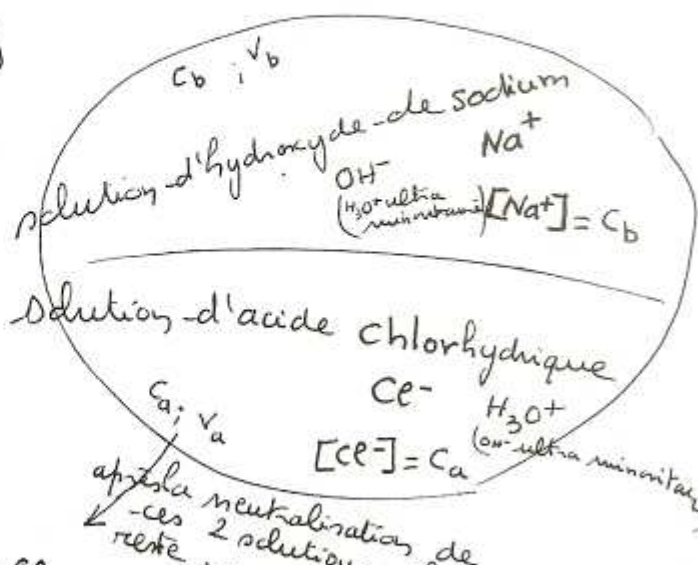 Cb ; Vb
solution d'hydroxyde de sodium
Na+
OH-
(H3O+ ultra
minoritaire)
[Na+] = Cb
solution d'acide chlorhydrique
Cl-
H3O+
(OH- ultra minoritaire
Ca ; Va
[Cl-] = Ca
après la neutralisation de
ces 2 solutions
reste